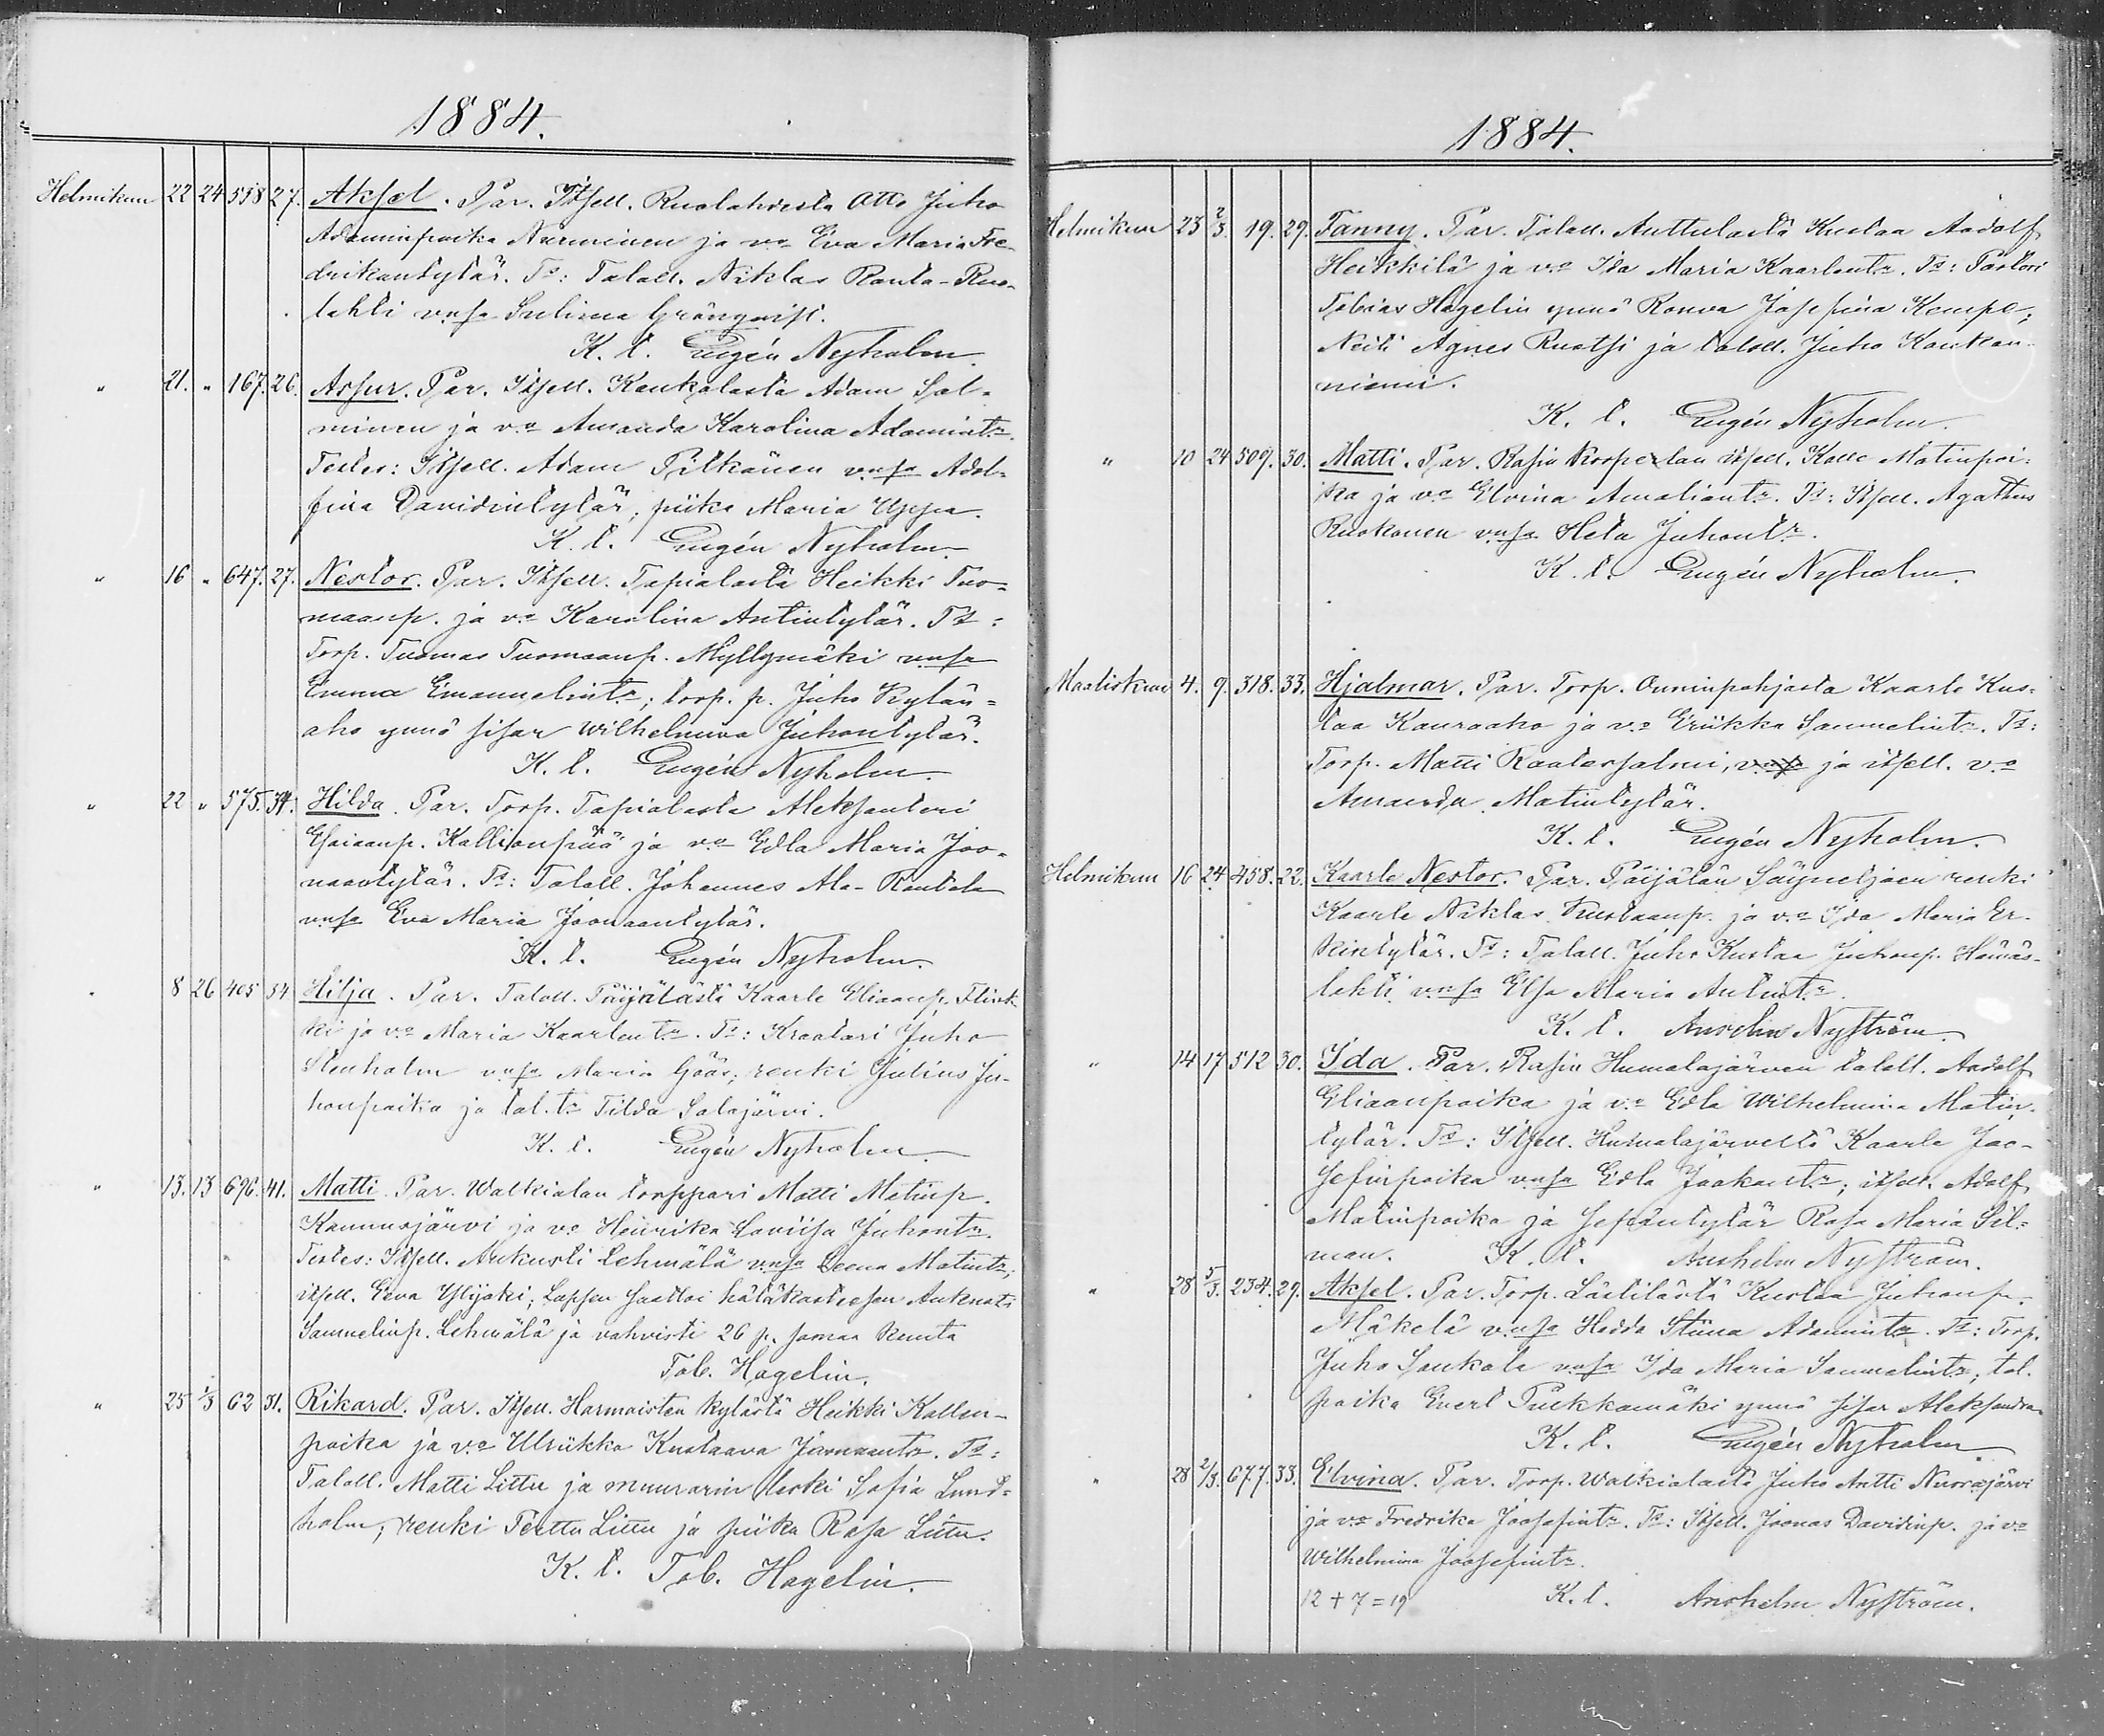 1884.
Helmikuu 22 24 558 27. Aksel. Par. Itsell. Ruolahdesta Otto Juho
Adaminpoika Nurminen ja v:o Eva Maria Fre-
drikantytär. T:s: Talall. Niklas Ranta-Ruo-
lahti v:nsa Sulima Grönqvist.
K. t. Eugén Nyholm.
" 21. " 167. 26. Par. Itsell. Kaukolasta Adam Sal-
minen ja v:o Amanda Karolina Adamint:r.
Testes: Itsell. Adam Pitkänen v:nsa Adol-
fina Davidintytär; piika Maria Uppa.
K. t. Eugén Nyholm.
" 16 " 647. 27. Nestor. Par. Itsell. Tapialasta Heikki Tuo-
maanp. ja v:o Karolina Antintytär. T:s:
Torp. Tuomas Tuomaanp. Myllymäki v:nsa
Emma Emanuelint:r; torp. p. Juho Kylän-
aho ynnä sisar Wilhelmina Juhontytär.
K. t. Eugén Nyholm.
" 22 " 575. 34. Hilda. Par. Torp. Tapialasta Aleksanteri
Esaianp. Kallionpää ja v:o Edla Maria Joo-
naantytär. T:s: Talall. Johannes Ala-Rautala
v:nsa Eva Maria Joonaantytär.
K. t. Eugén Nyholm.
" 8 26 405 34 Hilja. Par. Taloll. Päijälästä Kaarle Eliaanp. Flink-
ki ja v:o Maria Kaarlent:r. T:s: Kraatari Juho
Stenholm v:nsa Maria Göös; renki Julius Ju-
honpoika ja tal. t:r Tilda Salajärvi.
K. t. Eugén Nyholm.
" 13. 13 696. 41. Matti. Par. Walkialan torppari Matti Matinp.
Kannusjärvi ja v:o Heinrika Loviisa Juhont:r.
Testes: Itsell. Aukusti Lehmälä v:nsa Leena Matint:r;
itsell. Eeva Ylijoki; Lapsen saattoi hätäkasteesen Aukusti
Samuelinp. Lehmälä ja vahvisti 26 p. samaa kuuta
Tob. Hagelin.
" 25 2/3 62 31. Rikard. Par. Itsell. Harmoisten kylästä Heikki Kallen-
poika ja v:o Ulriikka Kustaava Joonaant:r. T:s:
Talall. Matti Littu ja muurarin leski Sofia Lund-
holm; renki Perttu Littu ja piika Rosa Littu.
K. t. Tob. Hagelin.
1884.
Helmikuu 23 2/3. 19. 29. Fanny. Par. Talall. Auttulasta Kustaa Aadolf
Heikkilä ja v:o Ida Maria Kaarlent:r. T:s: Pastori
Tobias Hagelin ynnä Rouva Josefina Kempe;
Neiti Agnes Ruotsi ja taloll. Juho Kaukon-
niemi.
K. t. Eugén Nyholm.
" 10 24 509. 30. Matti. Par. Rasin Roopertan itsell. Kalle Matinpoi-
ka ja v:o Elvina Amaliant:r. T:s: Itsell. Agathus
Ruokonen v:nsa Heta Juhont:r.
K. t. Eugén Nyholm.
Maaliskuu 4. 9. 318. 33. Hjalmar. Par. Torp. Onninpohjasta Kaarle Kus-
taa Kauraaho ja v:o Eriikka Samuelint:r. T:s:
Torp. Matti Rautersalmi, v:nsa ja itsell. v:o
Amanda Matintytär.
K. t. Eugén Nyholm.
Helmikuu 16 24 458. 22. Kaarle Nestor. Par. Päijälän Säynetjoen renki
Kaarle Niklas Kustaanp. ja v:o Ida Maria Er-
kintytär. T:s: Talall. Juho Kustaa Juhonp. Hämäs-
lahti v:nsa Elsa Maria Antint:r.
K. t. Anshelm Nyström.
" 14 17 512 30. Ida. Par. Rasin Humalajärven talall. Aadolf
Eliaanpoika ja v:o Edla Wilhelmina Matin-
tytär. T:s: Itsell. Humalajärveltä Kaarle Joo-
sefinpoika v:nsa Edla Jaakont:r; itsell. Adolf
Matinpoika ja sepäntytär Rosa Maria Sil-
man. K. t. Anshelm Nyström.
" 28 5/3. 234. 29. Aksel. Par. Torp. Lästilästä Kustaa Juhonp.
Mäkelä v:nsa Hedda Stiina Adamint:r. T:s: Torp.
Juho Saukola v:nsa Ida Maria Samuelint:r; tal.
poika Evert Pukkamäki ynnä sisar Aleksandra
K. t. Eugén Nyholm
" 28 2/3. 677. 33. Elvina. Par. Torp. Walkialasta Juho Antti Nuorajärvi
ja v:o Fredrika Joosefint:r. T:s: Itsell. Joonas Davidinp. ja v:o
Wilhelmina Joosefint:r.
12 + 7 = 19 K. t. Anshelm Nyström.